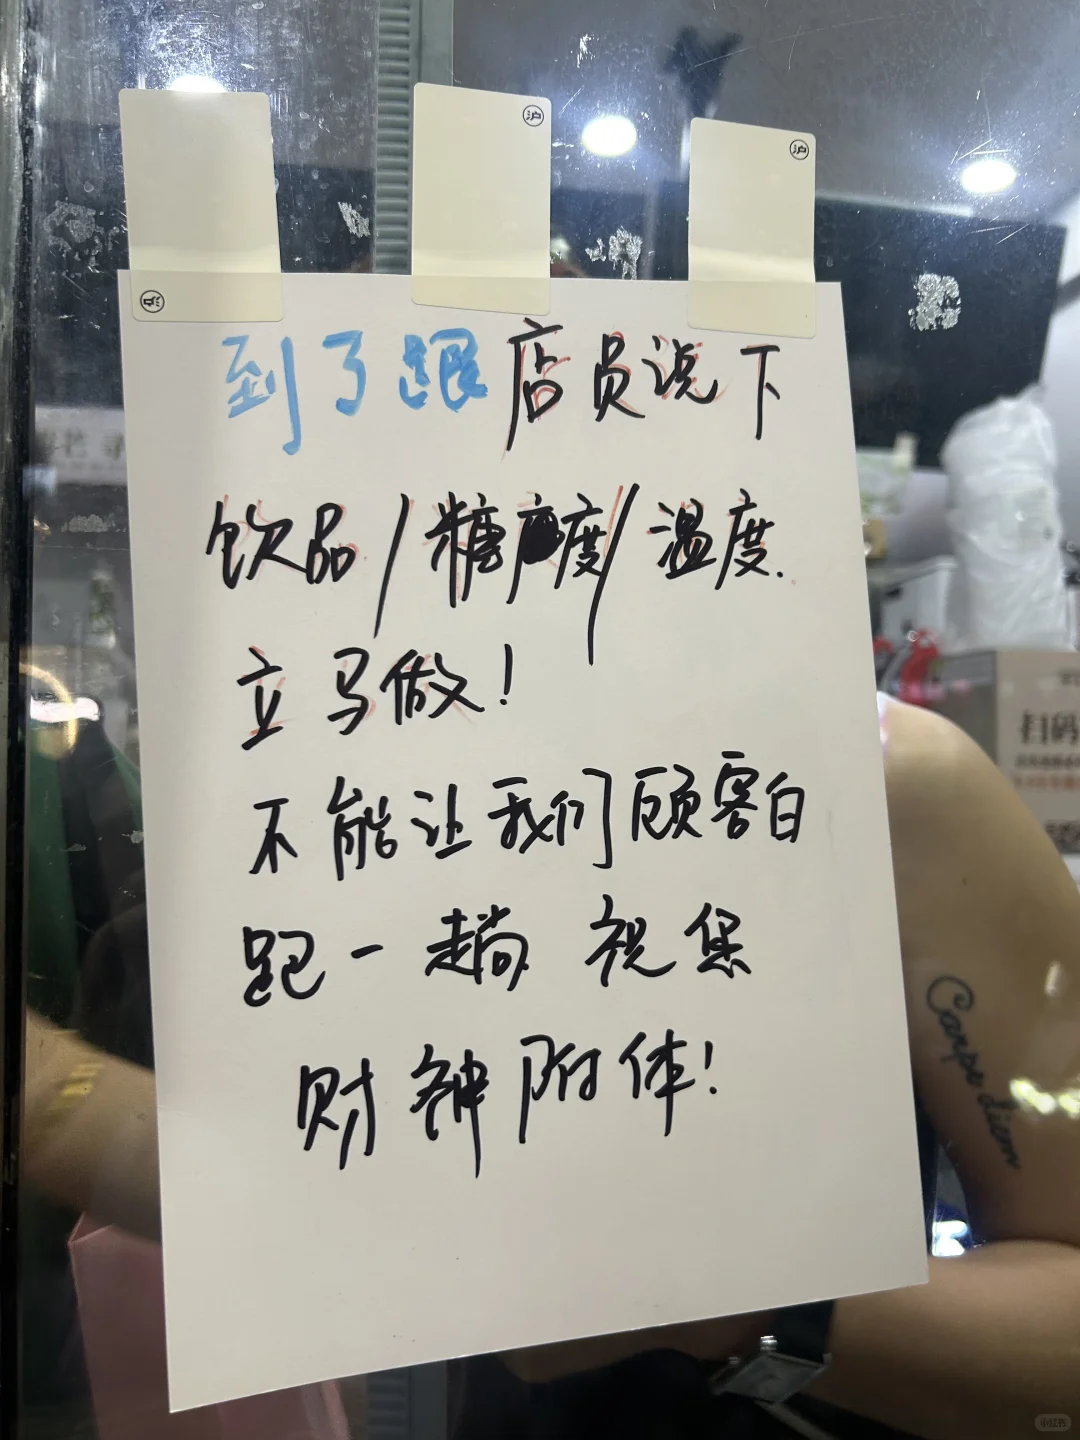 沪
沪
沪
到了跟店员说下
饮品/糖度/温度.
立马做!
不能让我们顾客白
跑一趟 祝您
财神附体!
扫码
Carpe diem
小红书